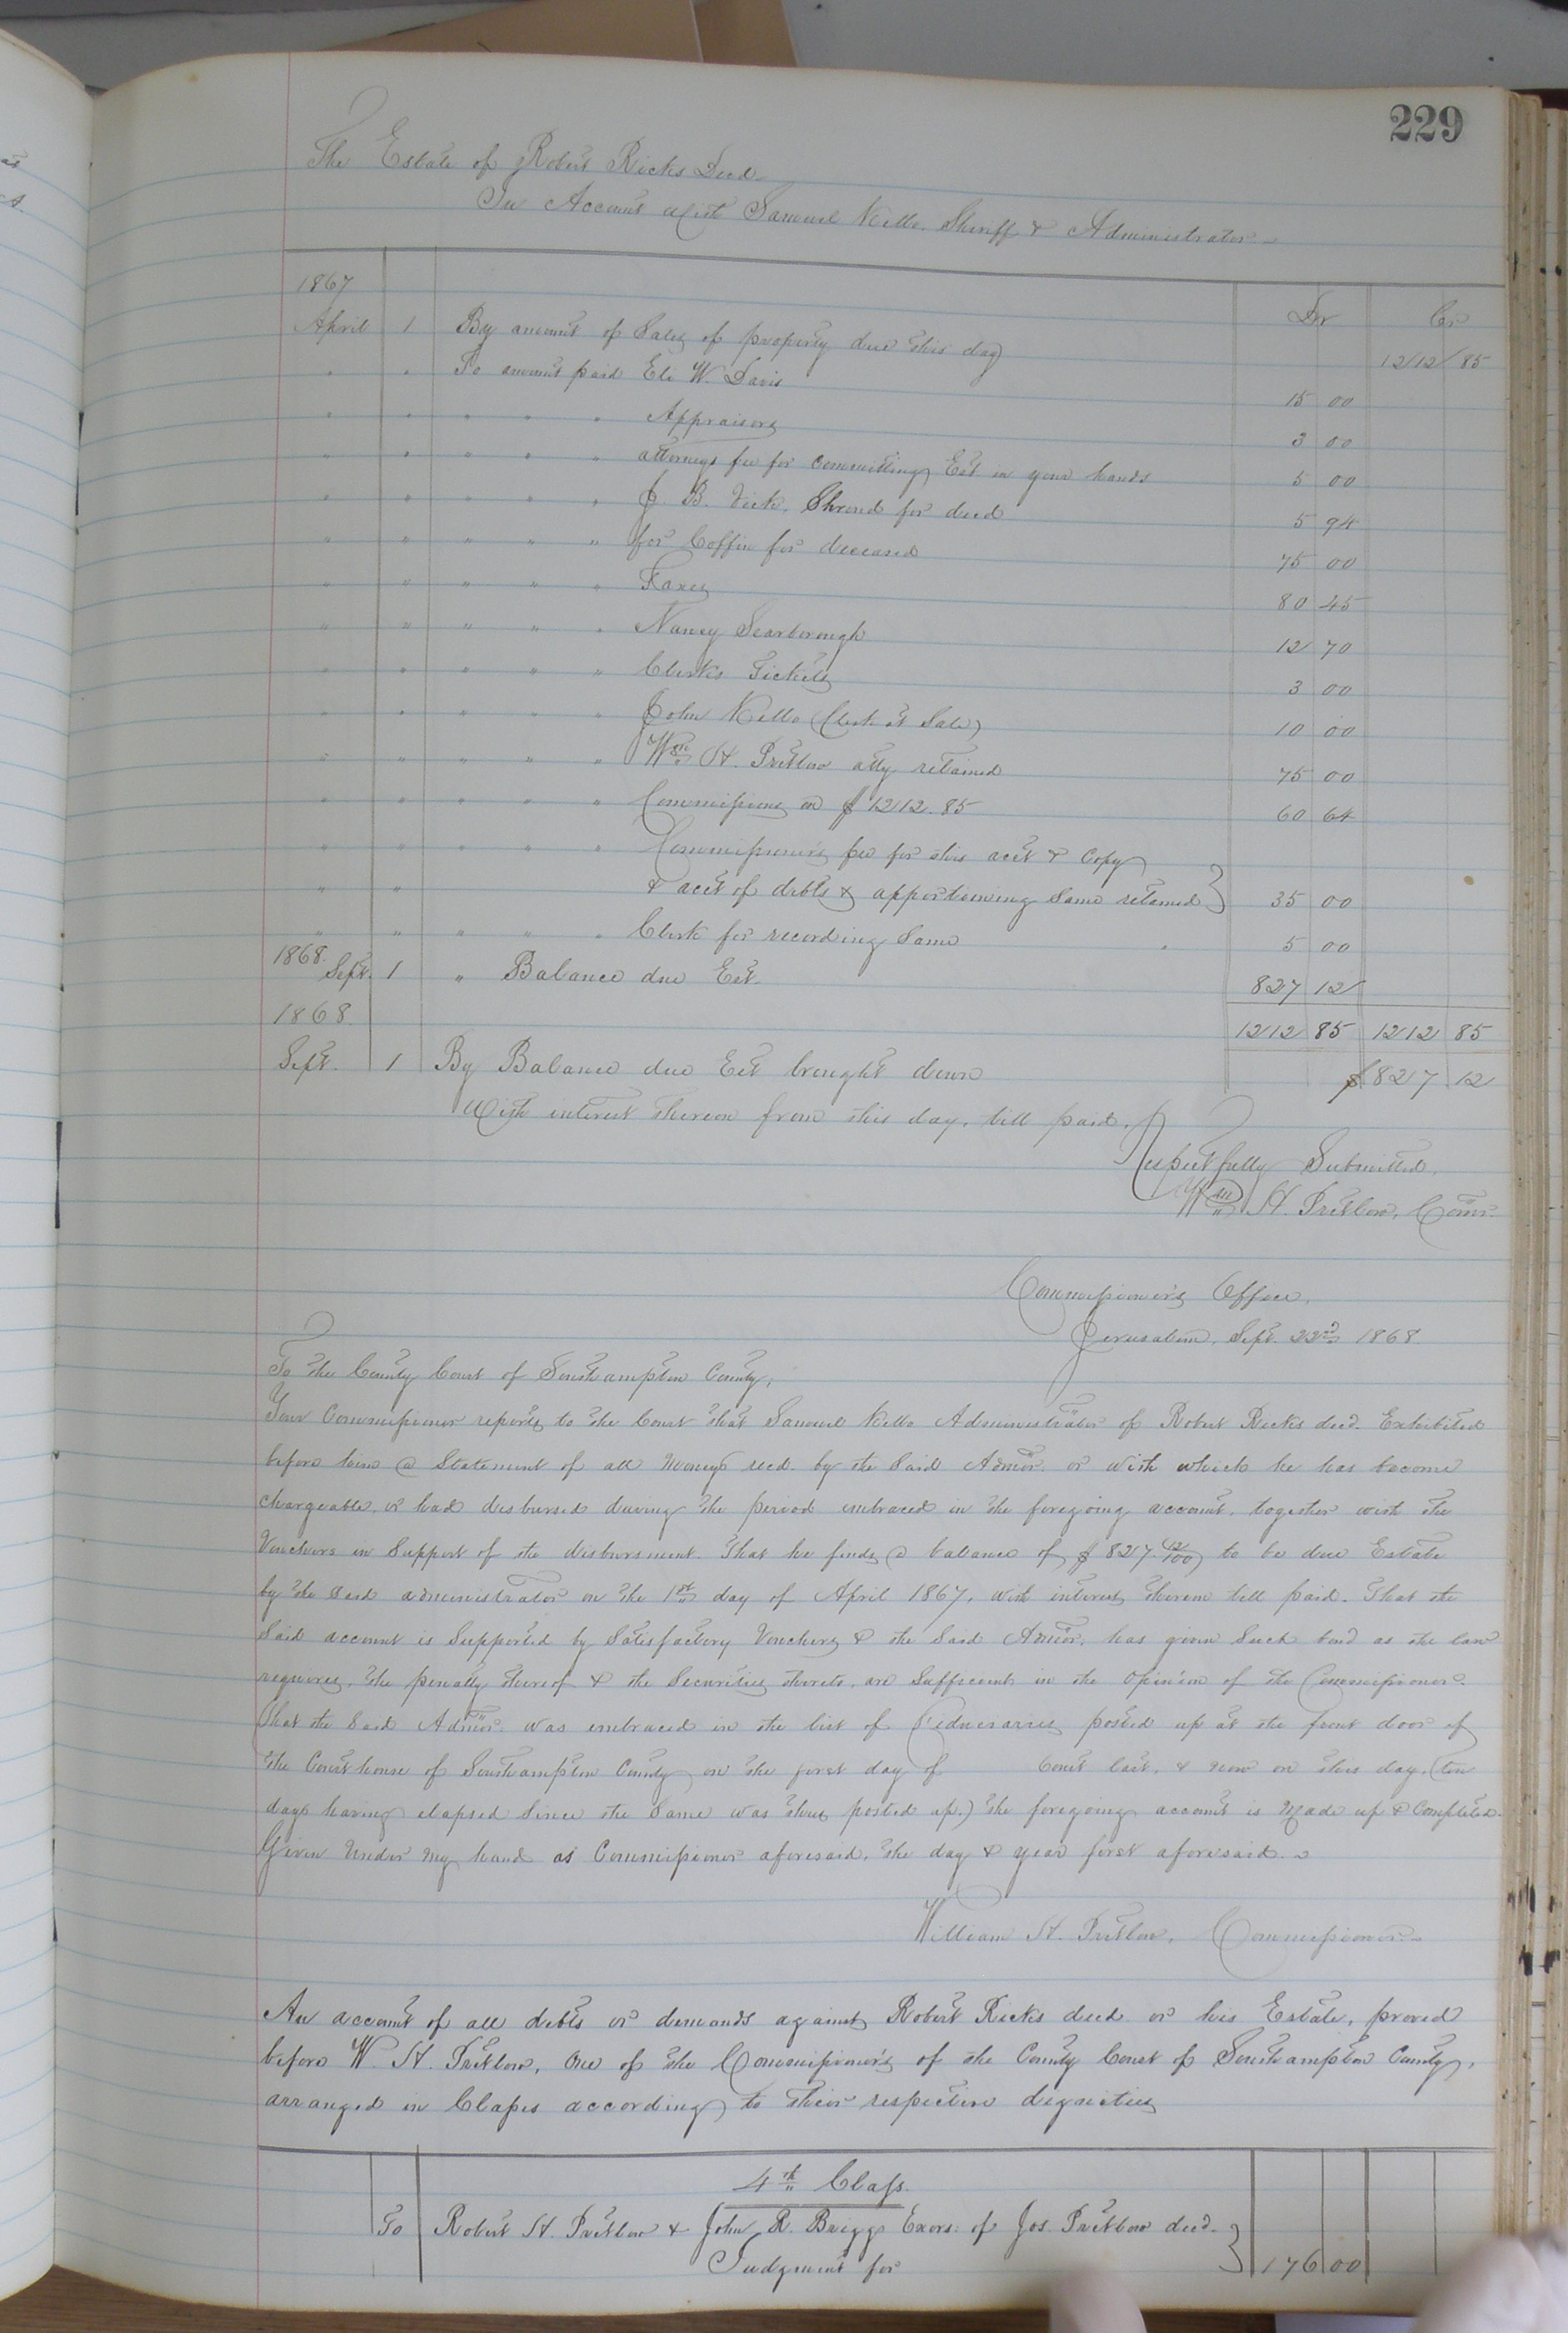 229
The Estate of Robert Ricks Decd.
In Account with Samuel Kello, Sheriff & Administrator
1867
Dr Cr
April 1 By amount of Sales of property due this day 1212 85
" " To amount paid Eli W. Davis 15 00
" " " " " Appraisers 3 00
" " " " " attorneys fee for committing Est in your hands 5 00
" " " " " J. B. Vick, Shroud for decd 5 94
" " " " " for Coffin for deceased 75 00
" " " " " Taxes 80 45
" " " " " Nancy Scarborough 12 70
" " " " " Clerks Tickets 3 00
" " " " " John Kello (Clerk at Sale) 10 00
" " " " " Wm H. Pretlow atty retained 75 00
" " " " " Commissions on $1212.85 60 64
" " " " " Commissioners fee for this acct & Copy
" " & acct of debts & apportioning Same retained } 35 00
" " " " " Clerk for recording Same 5 00
1868. Sept. 1 " Balance due Est. 827 12
1868 1212 85 1212 85
Sept. 1 By Balance due Est brought down $827 12
With interest thereon from this day, till paid.
Respectfully Submitted,
Wm H. Pretlow, Comr.
Commissioner's Office,
Jerusalem, Sept. 22nd 1868
To the County Court of Southampton County,
Your Commissioner reports to the Court that Samuel Kello Administrator of Robert Ricks decd. Exhibited
before him a Statement of all Moneys recd. by the Said Admor. or with which he has become
chargeable, or had disbursed during the period embraced in the foregoing account, together with the
Vouchers in Support of the disbursment. That he finds a balance of $827.12/100 to be due Estate
by the said administrator on the 1st day of April 1867, with interest thereon till paid. That the
Said account is Supported by Satisfactory Vouchers & the Said Admor. has given Such bond as the law
requires, the penalty thereof & the Securities thereto, are Sufficient in the Opinion of the Commissioner.
That the Said Admor. was embraced in the list of Fiduciaries posted up at the front door of
the Courthouse of Southampton County on the first day of Court last, & now on this day, (ten
days having elapsed Since the Same was thus posted up.) the foregoing account is Made up & Completed.
Given Under My hand as Commissioner aforesaid, the day & year first aforesaid.
William H. Pretlow, Commissioner
An account of all debts or demands against Robert Ricks decd or his Estate, proved
before W. H. Pretlow, One of the Commissioner's of the County Court of Southampton County,
arranged in Classes according to their respective dignities
4th Class.
To Robert H. Pretlow & John R. Briggs Exors. of Jos. Pretlow decd.
Judgment for } 176 00